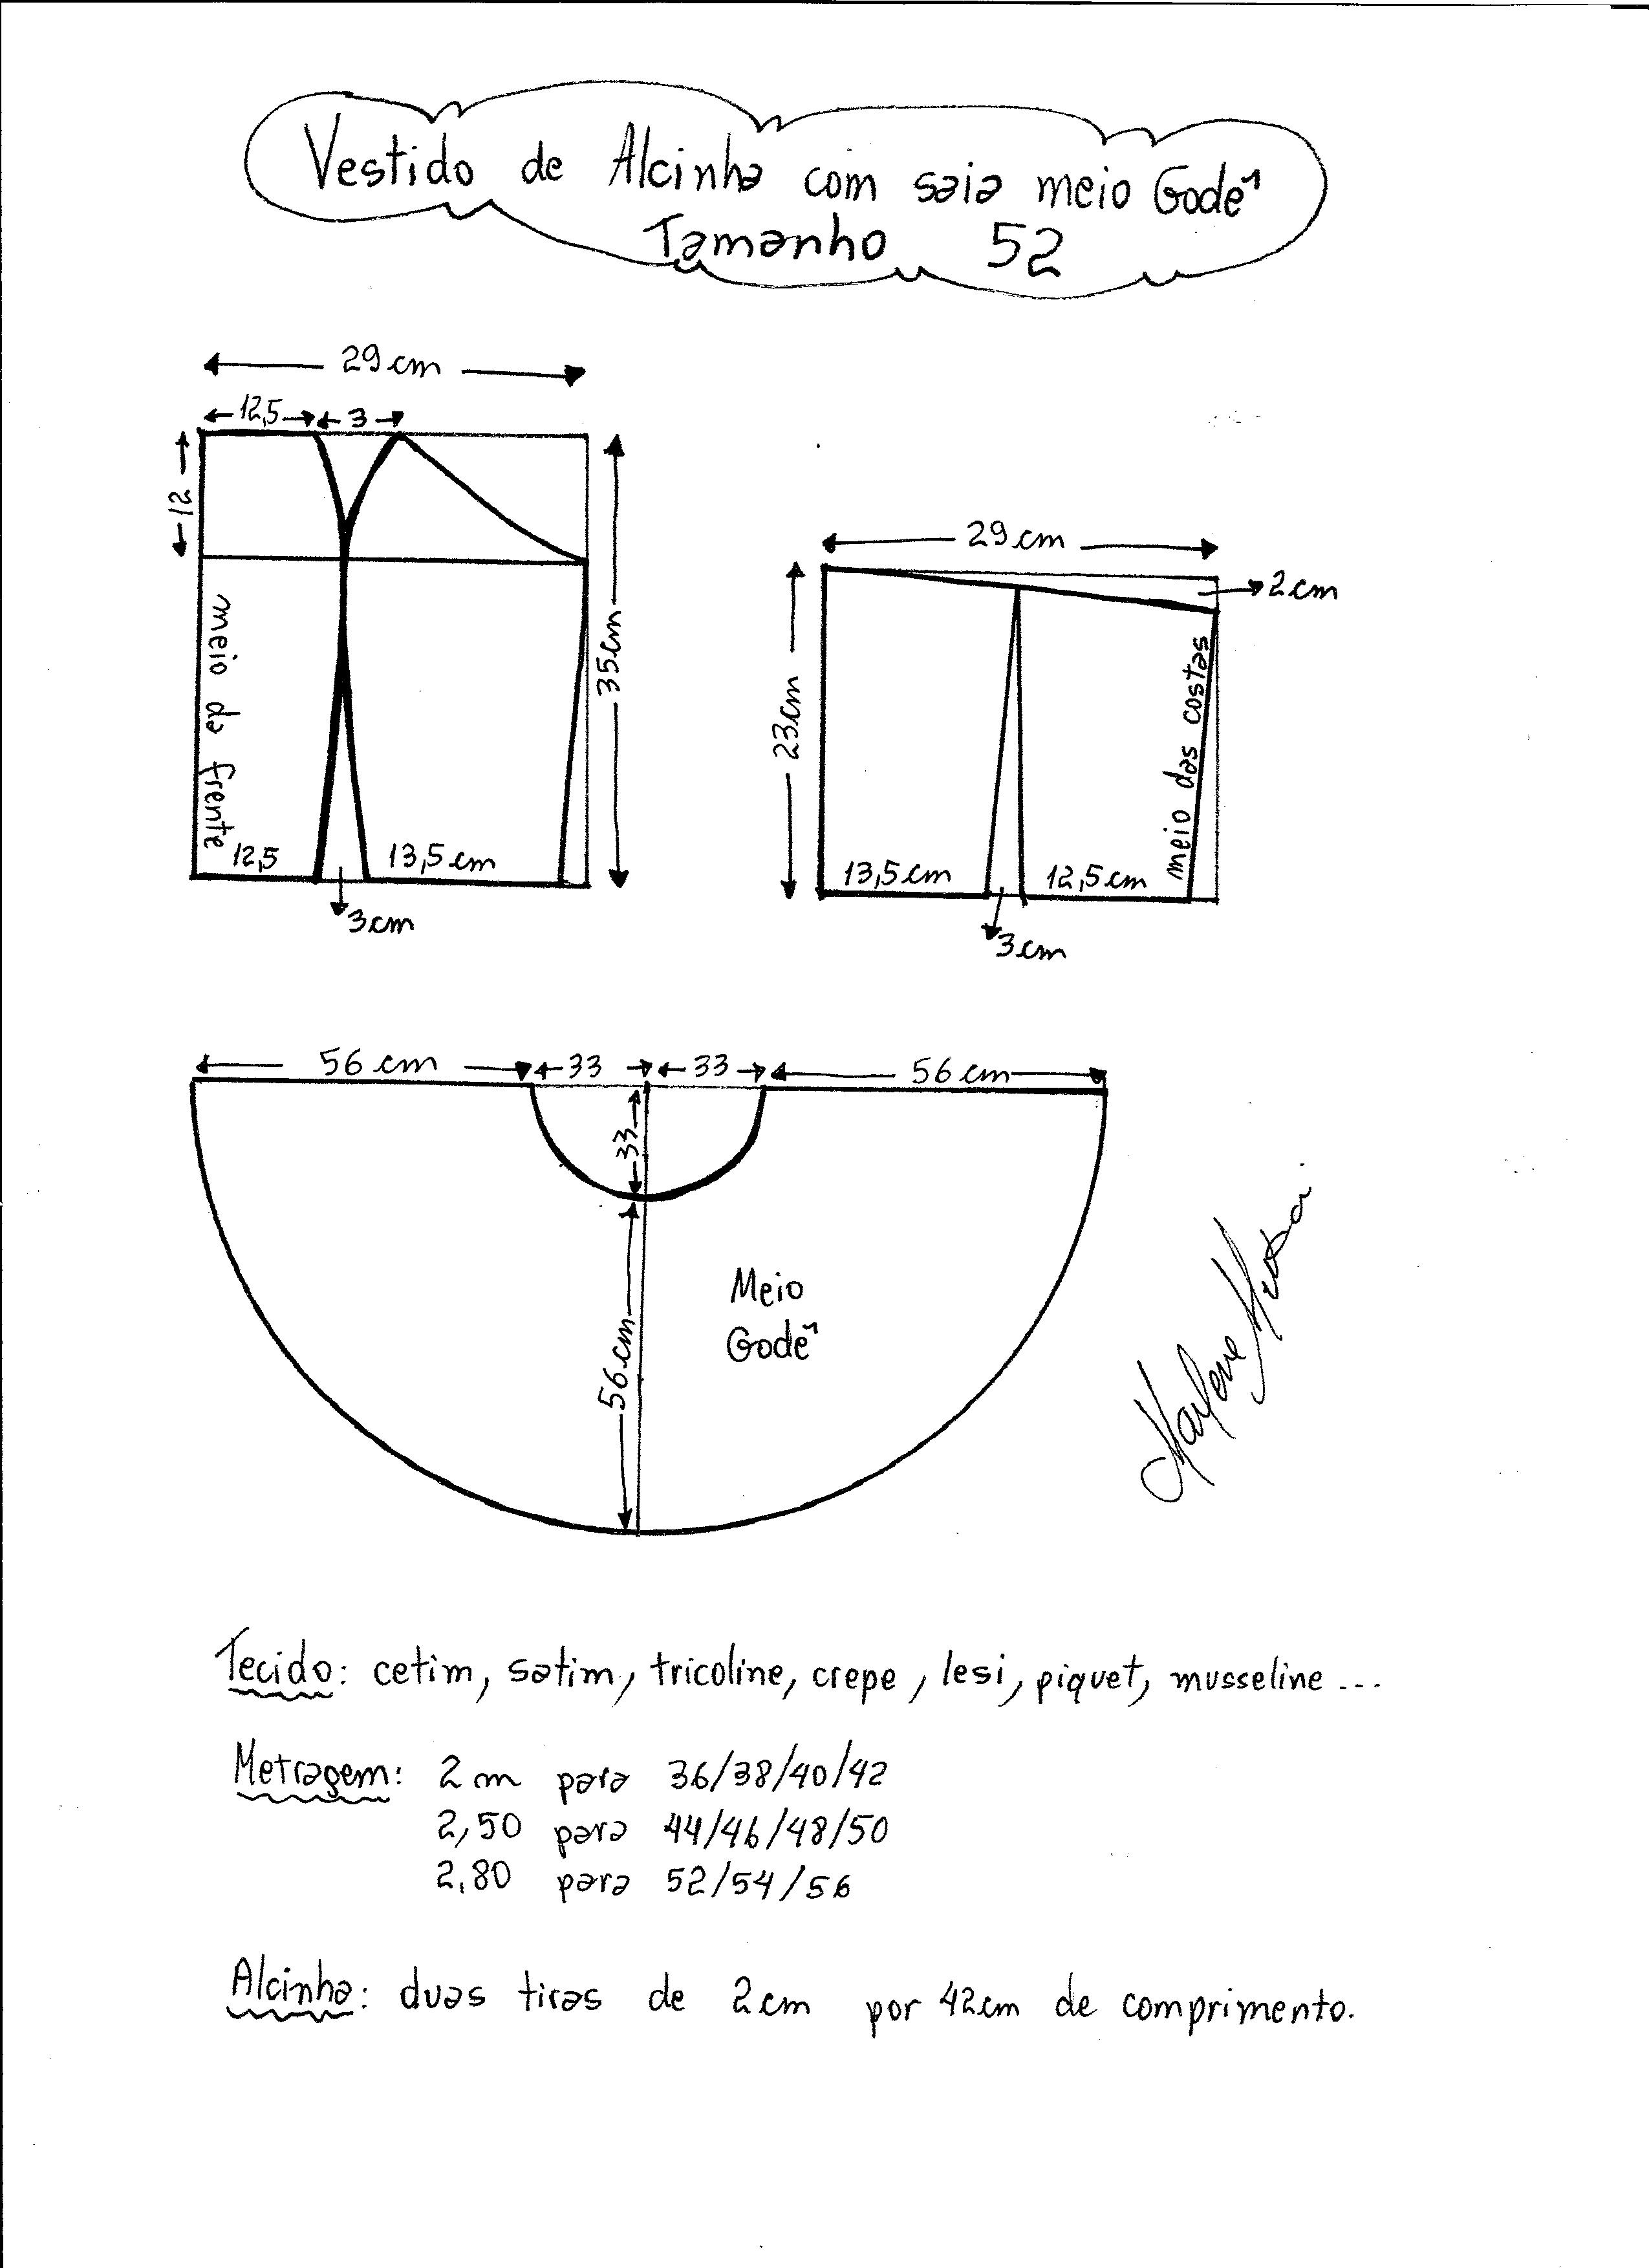 Vestido de Alcinha com saia meio Godê
Tamanho 52
29 cm
12,5 3
12
35cm
meio da frente
12,5 13,5 cm
3cm
29 cm
2 cm
23cm
meio das costas
13,5 cm 12,5 cm
3 cm
56 cm 33 33 56 cm
33
56 cm
Meio
Godê
Marlene
Tecido: cetim, satim, tricoline, crepe, lesi, piquet, musseline ...
Metragem: 2 m para 36/38/40/42
2,50 para 44/46/48/50
2,80 para 52/54/56
Alcinha: duas tiras de 2 cm por 42cm de comprimento.